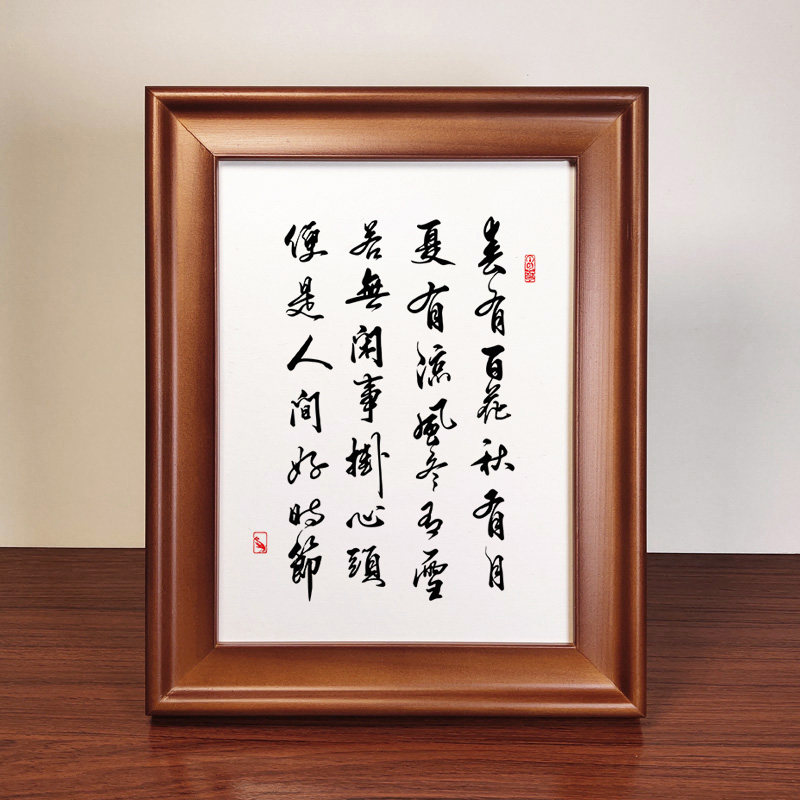 春有百花秋有月
夏有涼風冬有雪
若無閑事掛心頭
便是人间好時節